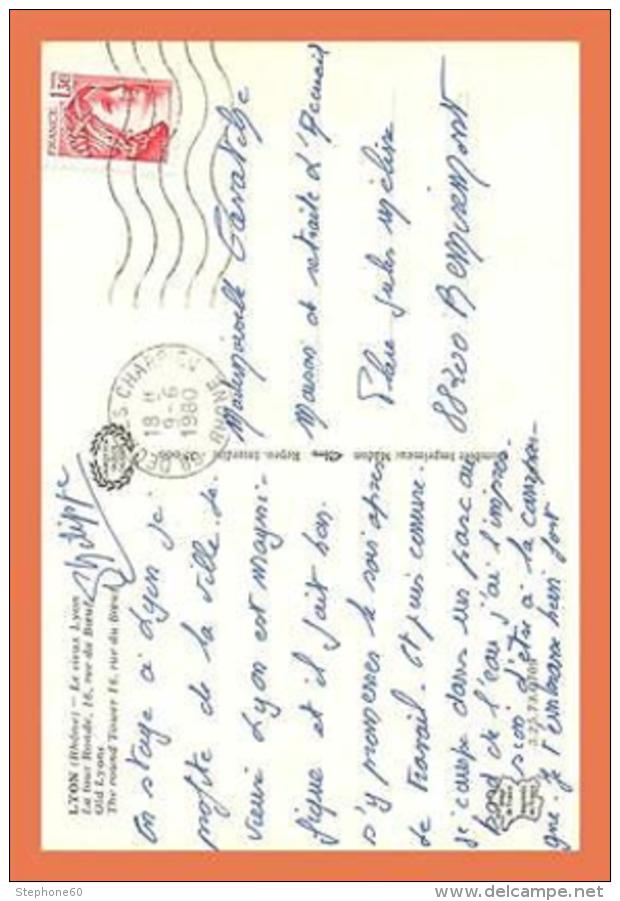 LYON (Rhône) - Le vieux Lyon
La tour Ronde, 16, rue du Bœuf
Old Lyons
The round Tower 16, rue du Bœuf
Philippe
En stage à Lyon je
profite de la ville. Le
vieux Lyon est magni-
fique et il fait bon
s'y promener le soir après
le travail. Et puis comme
je campe dans un parc au
bord de l'eau j'ai l'impres-
sion d'être à la campa-
gne. Je t'embrasse bien fort
Combier Imprimeur Mâcon
Repro. Interdite
FRANCE 1,30
18 H
9-6
1980
RHONE
Mademoiselle
Maison de retraite d'Accueil
Place Jules Méline
88200 Remiremont
Stephone60
delcampe.net